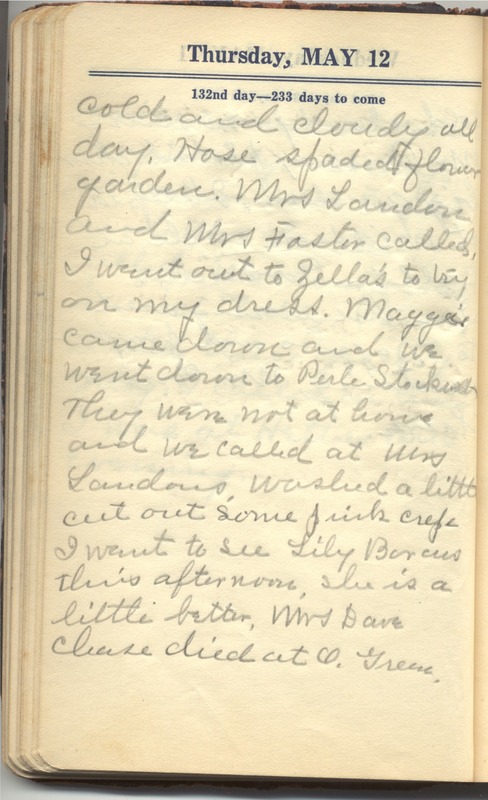 Thursday, MAY 12
132nd day—233 days to come
cold and cloudy all
day. Hose spaded flower
garden. Mrs Landon
and Mrs Foster called,
I went out to Zella's to try
on my dress. Maggie
came down and we
went down to Perle
They were not at home
and we called at Mrs
Landons, washed a little
cut out some pink crepe
I went to see Lily Borcus
this afternoon, she is a
little better, Mrs Dave
Chase died at O. Green.